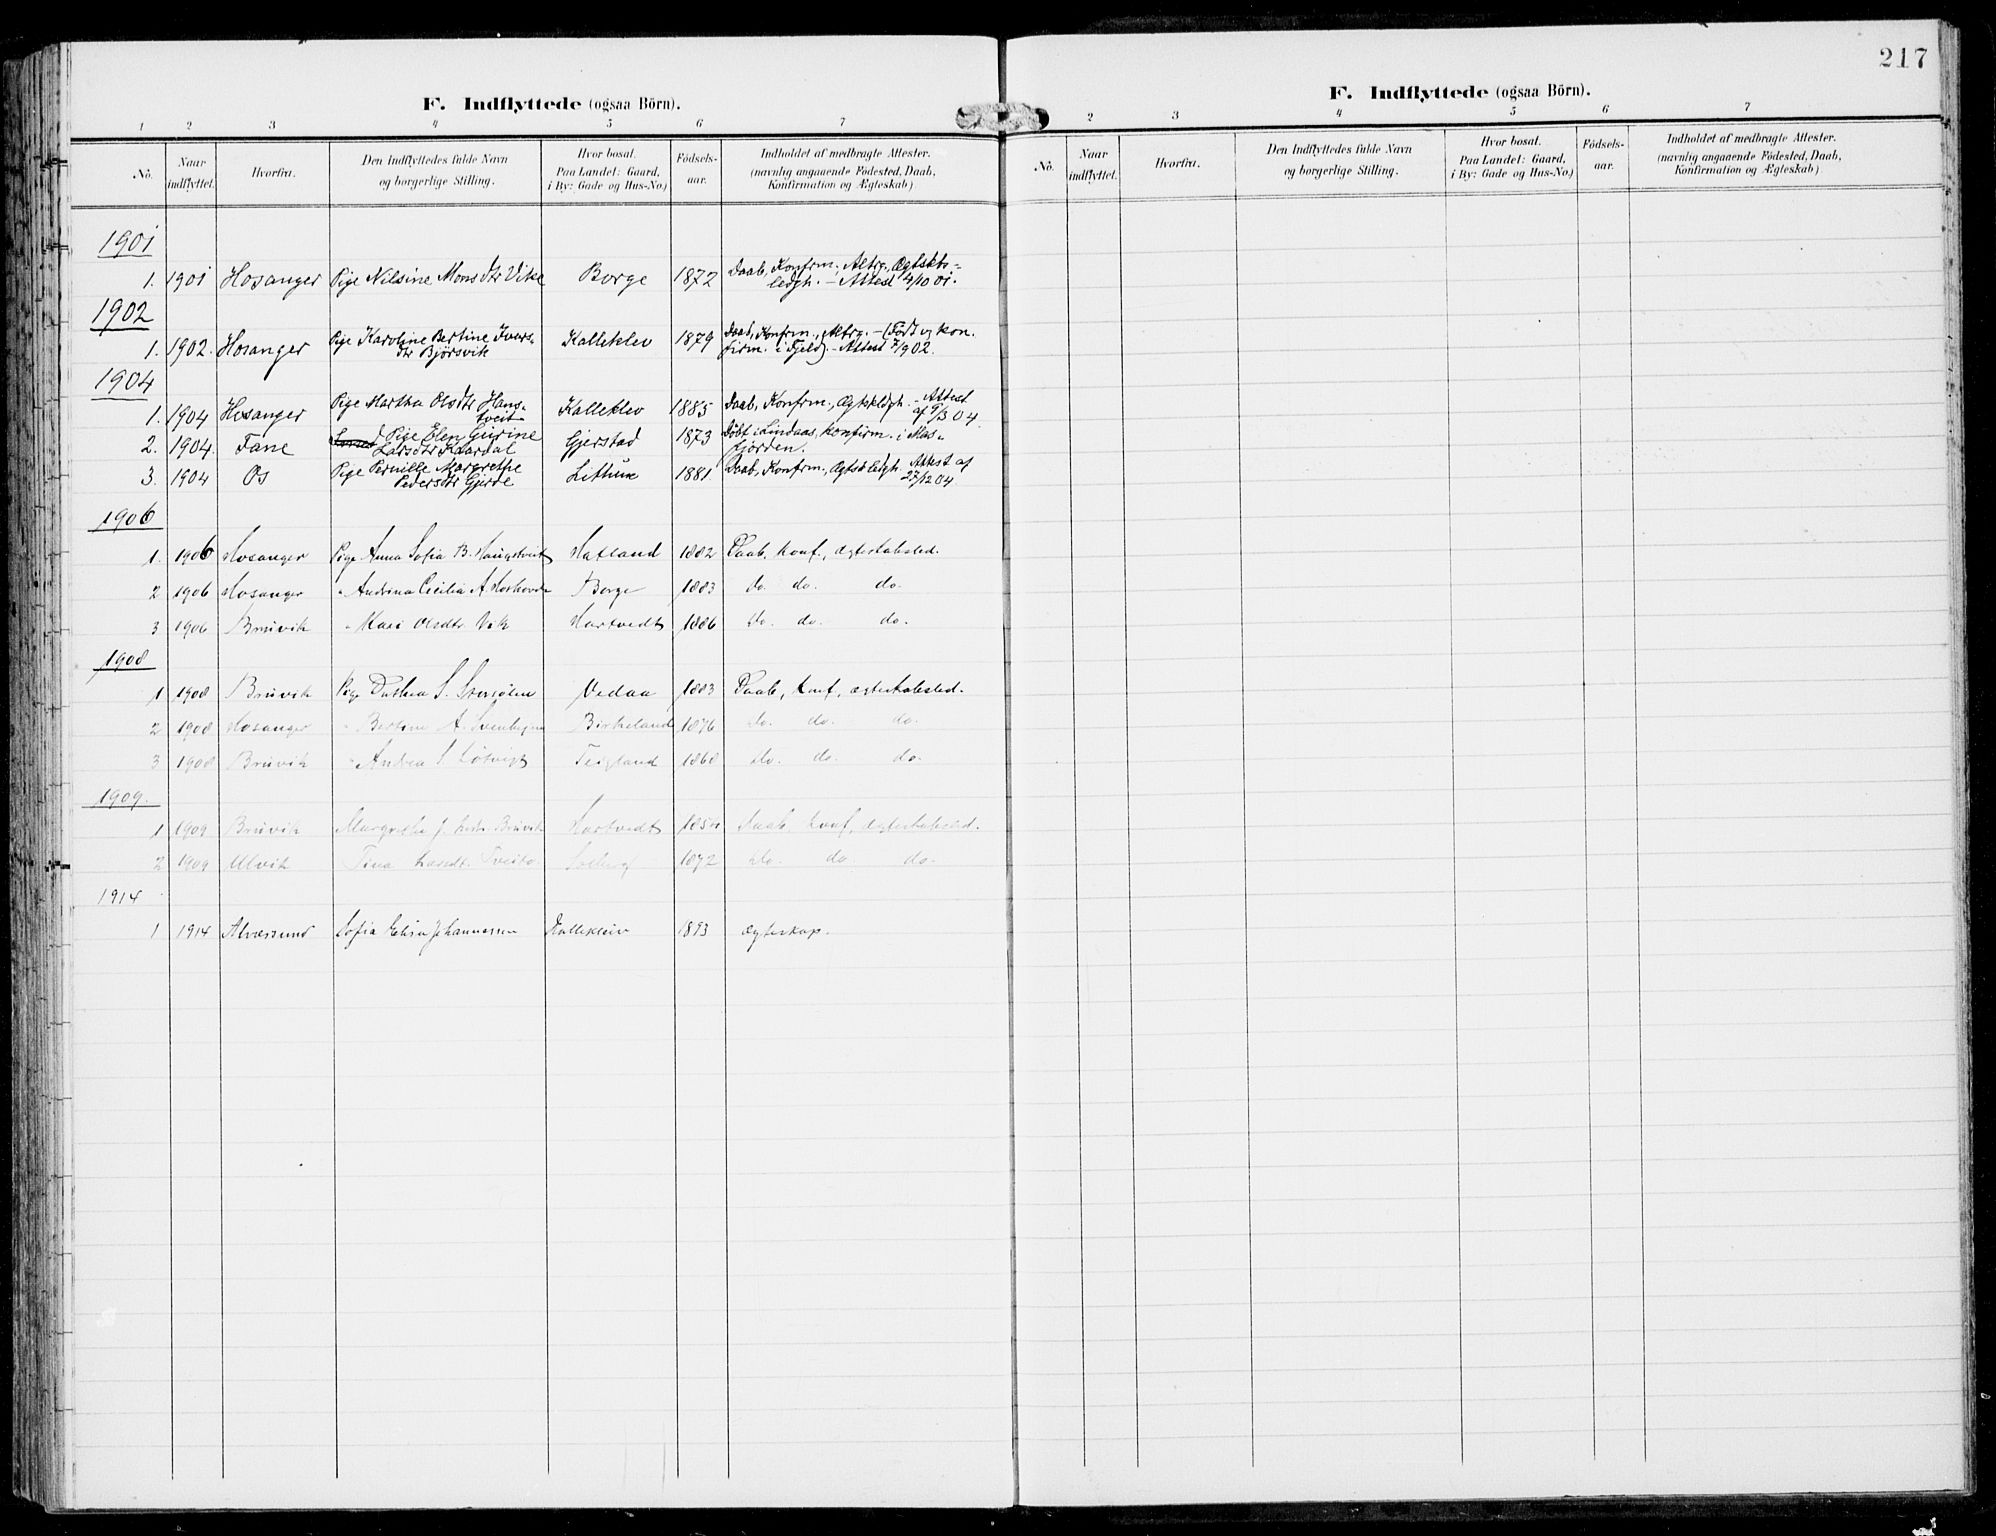 217
F. Indflyttede (ogsaa Börn).
1 2 3 4 5 6 7
No. Naar indflyttet. Hvorfra. Den Indflyttedes fulde Navn og borgerlige Stilling. Hvor bosat. Paa Landet: Gaard, i By: Gade og Hus-No.) Fødsels-aar. Indholdet af medbragte Attester. (navnlig angaaende Födested, Daab, Konfirmation og Ægteskab)
1901
1. 1901 Hosanger Pige Nilsine Monsdtr Vike Borge 1872 Daab, Konfrm., Altrg., Ægtskbs-
ledgh. – Attest 4/10 01.
1902
1. 1902. Hosanger Pige Karoline Bertine Ivers- Kalleklev 1879 Daab, Konfrm., Altrg. – (Födt og kon.
dtr Björsvik firm. i Fjeld). – Attest 7/9 02.
1904
1. 1904 Hosanger Pige Martha Olsdtr Hans- Kalleklev 1885 Daab, Konfrm., Ægtskldgh. – Attest
tveit af 9/3 04.
2. 1904. Fane Pige Elen Gurine Gjerstad 1873 Döbt i Lindaas, konfirm. i Mas-
Larsdtr Kaardal fjorden.
3. 1904 Os Pige Pernille Margrethe Lithun 1881 Daab, Konfrm., Ægtskbledgh. Attest af
Pedersdtr Gjerde 27/12 04
1906
1. 1906 Hosanger Pige Anna Sofia B. Haugstveit Hatland 1882 Daab, konf., ægteskabsled.
2 1906 Hosanger " Andrina Cecilia A Borge 1883 do. do. do.
3 1906 Bruvik " Kari Olsdtr Vik Hartvedt 1886 do. do. do.
1908
1 1908 Bruvik Pige Dorthea S. Vedaa 1883 Daab, konf, ægteskabsled.
2 1908 Hosanger " A. Birkeland 1876 do. do. do.
3 1908 Bruvik " Andrea S. Teigland 1860 do. do. do.
1909.
1 1909 Bruvik Margrethe J. Bruvik Hartvedt Daab konf, ægteskabsled.
2 1909 Ulvik Tina Larsdt. Tveito Solberg 1872 do. do. do.
1914
1 1914 Alversund Sofia Elisa Johannessen Kallekleiv 1893 ægteskap.
F. Indflyttede (ogsaa Börn).
2 3 4 5 6 7
No. Naar indflyttet. Hvorfra. Den Indflyttedes fulde Navn og borgerlige Stilling. Hvor bosat. Paa Landet: Gaard, i By: Gade og Hus-No.) Födsels-aar. Indholdet af medbragte Attester. (navnlig angaaende Födested, Daab, Konfirmation og Ægteskab)